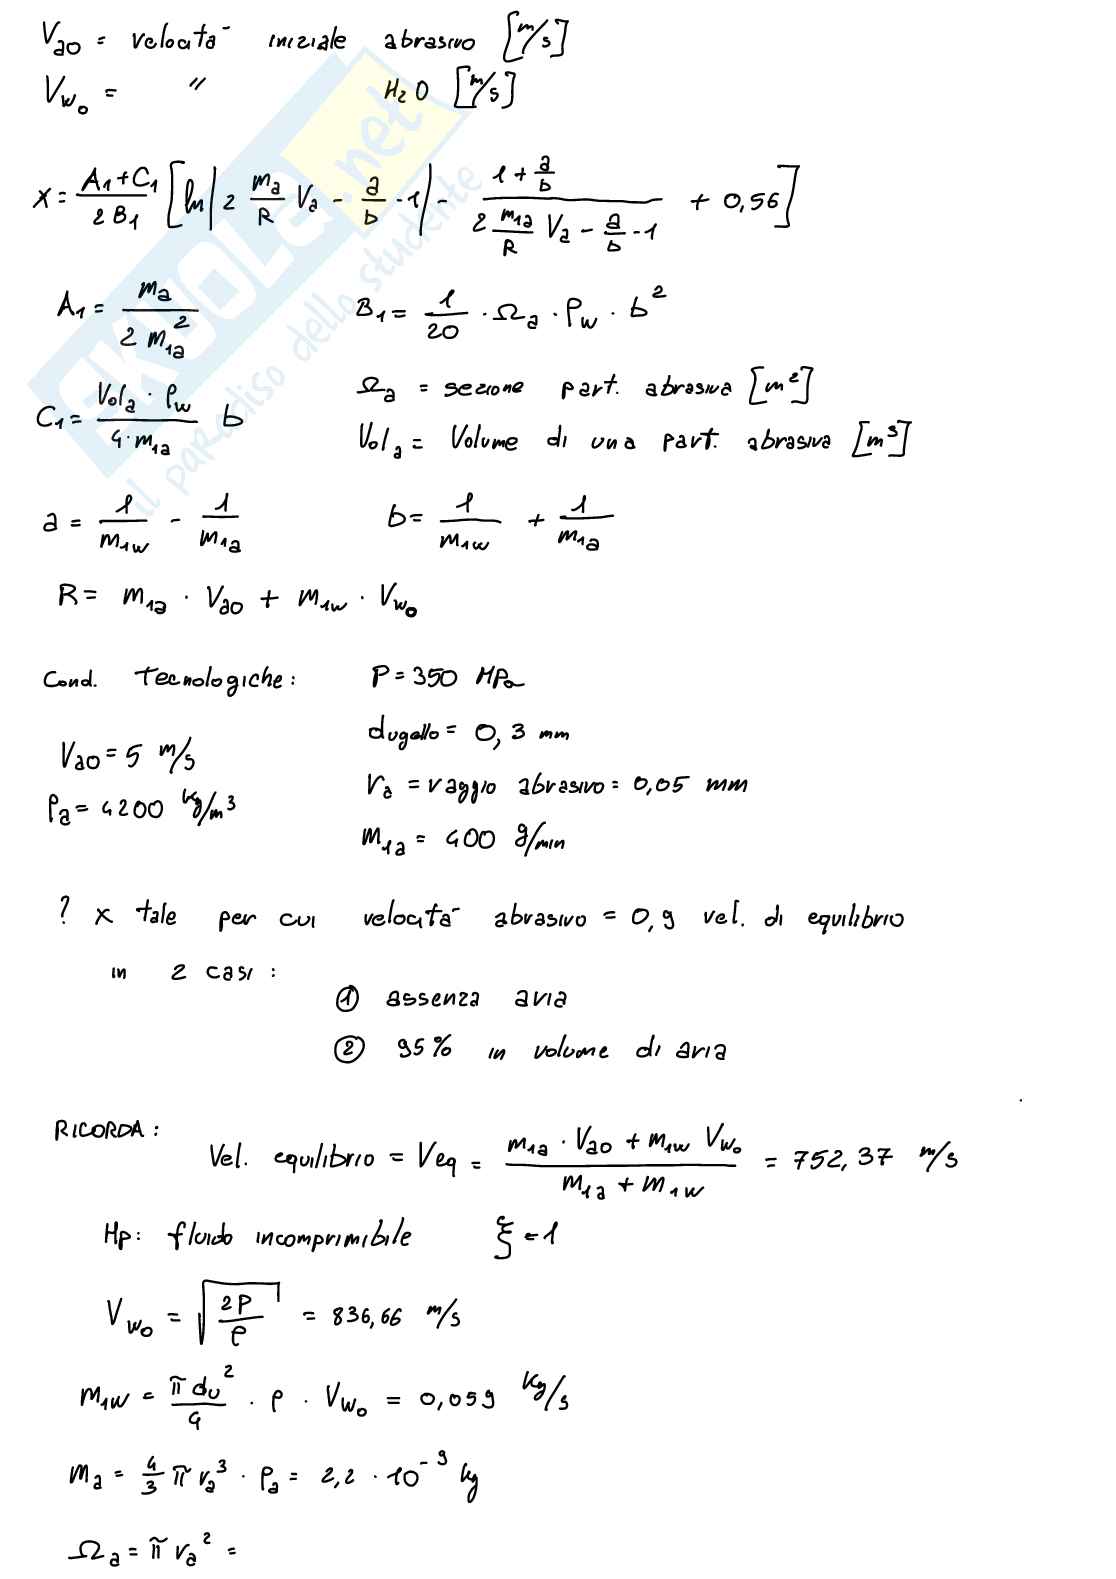 Va0 = velocità iniziale abrasivo [m/s]
Vw0 = " H2O [m/s]
x = (A1+C1)/(2 B1) [ln|2 ma/R Va - a/b -1| - (1 + a/b)/(2 m1a/R Va - a/b -1) + 0,56]
A1 = ma/(2 m1a²)
B1 = 1/20 · Ωa · ρw · b²
C1 = (Vola · ρw)/(4 · m1a) b
Ωa = sezione part. abrasiva [m²]
Vola = Volume di una part. abrasiva [m³]
a = 1/m1w - 1/m1a
b = 1/m1w + 1/m1a
R = m1a · Va0 + m1w · Vw0
Cond. Tecnologiche: P = 350 MPa
dugello = 0,3 mm
Va0 = 5 m/s
ra = raggio abrasivo = 0,05 mm
ρa = 4200 kg/m³
m1a = 400 g/min
? x tale per cui velocità abrasivo = 0,9 vel. di equilibrio
in 2 casi:
① assenza aria
② 95% in volume di aria
RICORDA:
Vel. equilibrio = Veq = (m1a · Va0 + m1w Vw0)/(m1a + m1w) = 752,37 m/s
Hp: fluido incomprimibile ξ = 1
Vw0 = √(2P/ρ) = 836,66 m/s
m1w = (π du²)/4 · ρ · Vw0 = 0,059 Kg/s
ma = 4/3 π ra³ · ρa = 2,2 · 10⁻⁹ kg
Ωa = π ra² =
SKUOLA.net
il paradiso dello studente